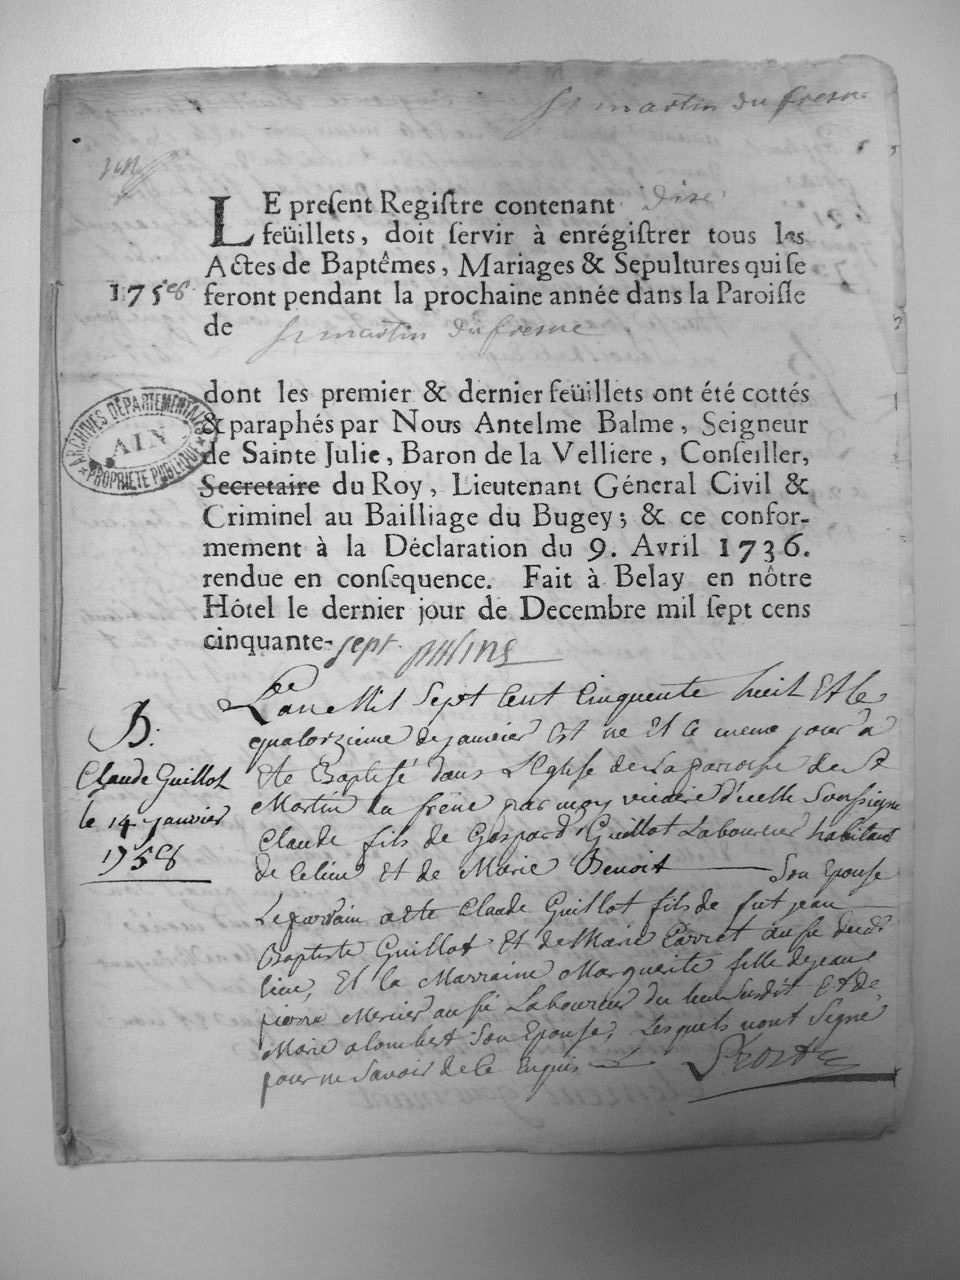 St martin du fresne
LE present Registre contenant dixe
feüillets, doit servir à enrégistrer tous les
Actes de Baptêmes, Mariages & Sepultures qui se
1758 feront pendant la prochaine année dans la Paroisse
de St martin Du fresne
dont les premier & dernier feüillets ont été cottés
& paraphés par Nous Antelme Balme, Seigneur
de Sainte Julie, Baron de la Velliere, Conseiller,
Secretaire du Roy, Lieutenant Géneral Civil &
Criminel au Bailliage du Bugey; & ce confor-
mement à la Déclaration du 9. Avril 1736.
rendue en consequence. Fait à Belay en nôtre
Hôtel le dernier jour de Decembre mil sept cens
cinquante-sept.
ARCHIVES DÉPARTEMENTALES
AIN
PROPRIÉTÉ PUBLIQUE
B.
Claude Guillot
le 14 janvier
1758
L'an Mil Sept Cent Cinquente huit Et le
quatorzieme de janvier Est ne Et le meme jour a
Ete Baptisé dans L'Eglise de La paroisse de St
Martin du frêne par moy vicaire d'icelle Soussigne
Claude fils de Gaspard Guillot Laboureur habitant
de ce lieu Et de Marie Benoit Son Epouse
Le parrain a ete Claude Guillot fils de fut jean
Baptiste Guillot Et de Marie Carret aussi dudt
lieu, Et la Marraine Marguerite fille de jean
pierre Mercier aussi Laboureur du lieu Susdit Et de
Marie alombert Son Epouse, Lesquels nont Signé
pour ne Savoir de Ce Enquis